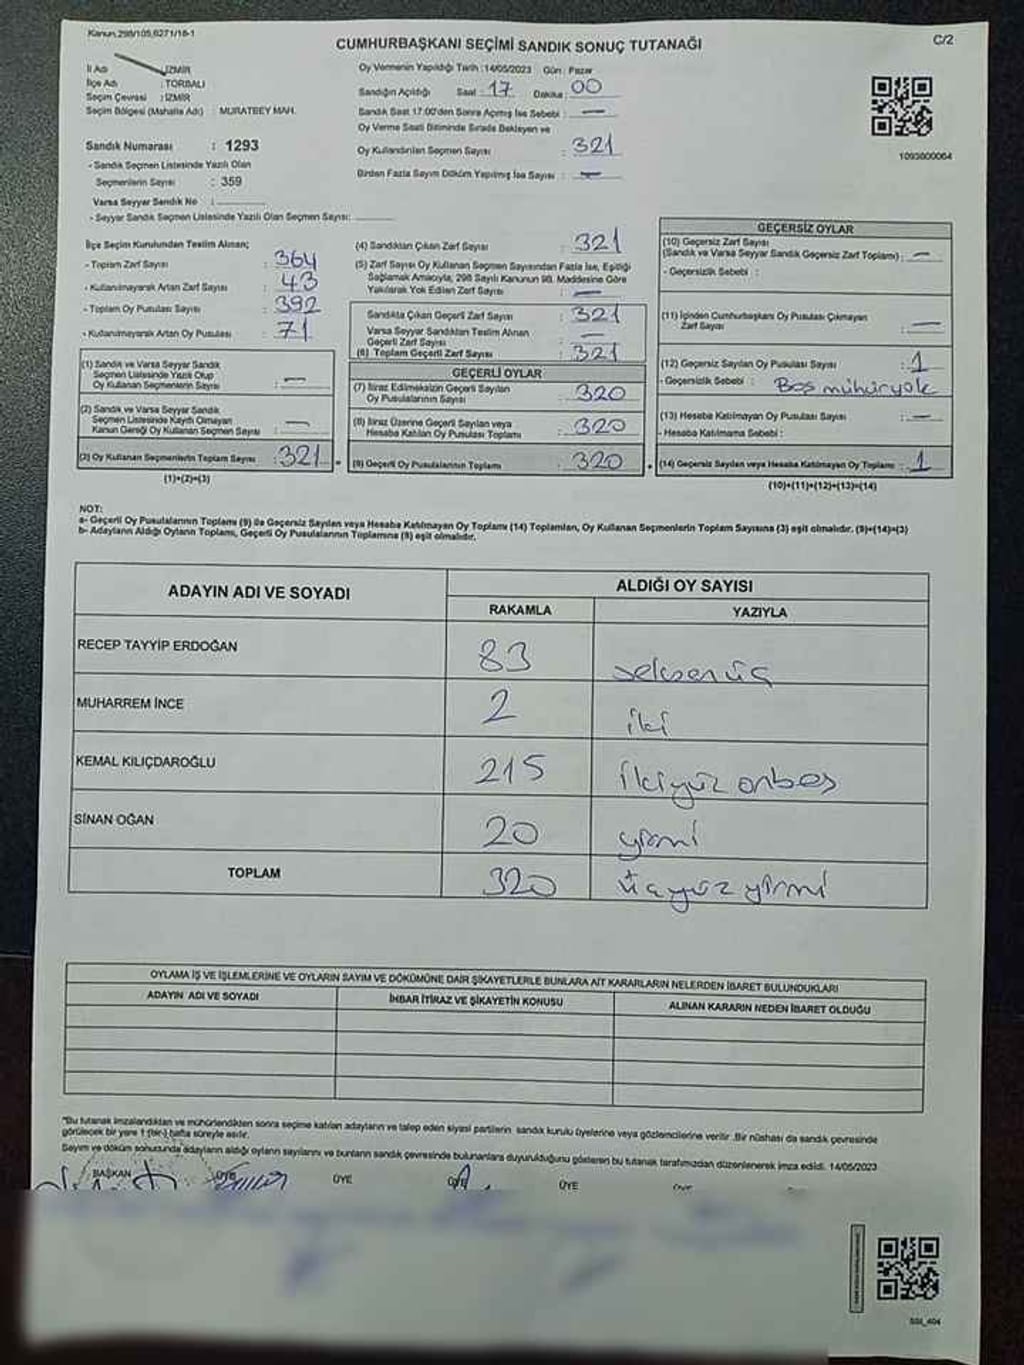 Kanun,298/105,6271/18-1
C/2
CUMHURBAŞKANI SEÇİMİ SANDIK SONUÇ TUTANAĞI
İl Adı : İZMİR
İlçe Adı : TORBALI
Seçim Çevresi : İZMİR
Seçim Bölgesi (Mahalle Adı) : MURATBEY MAH.
Sandık Numarası : 1293
- Sandık Seçmen Listesinde Yazılı Olan
Seçmenlerin Sayısı : 359
Varsa Seyyar Sandık No :
- Seyyar Sandık Seçmen Listesinde Yazılı Olan Seçmen Sayısı:
Oy Vermenin Yapıldığı Tarih :14/05/2023 Gün : Pazar
Sandığın Açıldığı Saat : 17 Dakika : 00
Sandık Saat 17:00'den Sonra Açılmış İse Sebebi : —
Oy Verme Saati Bitiminde Sırada Bekleyen ve
Oy Kullandırılan Seçmen Sayısı : 321
Birden Fazla Sayım Döküm Yapılmış İse Sayısı : —
1093600064
İlçe Seçim Kurulundan Teslim Alınan;
- Toplam Zarf Sayısı : 364
- Kullanılmayarak Artan Zarf Sayısı : 43
- Toplam Oy Pusulası Sayısı : 392
- Kullanılmayarak Artan Oy Pusulası : 71
(1) Sandık ve Varsa Seyyar Sandık
Seçmen Listesinde Yazılı Olup
Oy Kullanan Seçmenlerin Sayısı : —
(2) Sandık ve Varsa Seyyar Sandık
Seçmen Listesinde Kayıtlı Olmayan
Kanun Gereği Oy Kullanan Seçmen Sayısı : —
(3) Oy Kullanan Seçmenlerin Toplam Sayısı : 321
(1)+(2)=(3)
(4) Sandıktan Çıkan Zarf Sayısı : 321
(5) Zarf Sayısı Oy Kullanan Seçmen Sayısından Fazla İse, Eşitliği
Sağlamak Amacıyla, 298 Sayılı Kanunun 98. Maddesine Göre
Yakılarak Yok Edilen Zarf Sayısı : —
Sandıkta Çıkan Geçerli Zarf Sayısı : 321
Varsa Seyyar Sandıktan Teslim Alınan
Geçerli Zarf Sayısı : —
(6) Toplam Geçerli Zarf Sayısı : 321
GEÇERLİ OYLAR
(7) İtiraz Edilmeksizin Geçerli Sayılan
Oy Pusulalarının Sayısı : 320
(8) İtiraz Üzerine Geçerli Sayılan veya
Hesaba Katılan Oy Pusulası Toplamı : 320
(9) Geçerli Oy Pusulalarının Toplamı : 320
GEÇERSİZ OYLAR
(10) Geçersiz Zarf Sayısı
(Sandık ve Varsa Seyyar Sandık Geçersiz Zarf Toplamı) : —
- Geçersizlik Sebebi :
(11) İçinden Cumhurbaşkanı Oy Pusulası Çıkmayan
Zarf Sayısı : —
(12) Geçersiz Sayılan Oy Pusulası Sayısı : 1
- Geçersizlik Sebebi : Boş mühür yok
(13) Hesaba Katılmayan Oy Pusulası Sayısı : —
- Hesaba Katılmama Sebebi :
(14) Geçersiz Sayılan veya Hesaba Katılmayan Oy Toplamı : 1
(10)+(11)+(12)+(13)=(14)
NOT:
a- Geçerli Oy Pusulalarının Toplamı (9) ile Geçersiz Sayılan veya Hesaba Katılmayan Oy Toplamı (14) Toplamları, Oy Kullanan Seçmenlerin Toplam Sayısına (3) eşit olmalıdır. (9)+(14)=(3)
b- Adayların Aldığı Oyların Toplamı, Geçerli Oy Pusulalarının Toplamına (9) eşit olmalıdır.
ADAYIN ADI VE SOYADI
ALDIĞI OY SAYISI
RAKAMLA YAZIYLA
RECEP TAYYİP ERDOĞAN 83 seksenüç
MUHARREM İNCE 2 iki
KEMAL KILIÇDAROĞLU 215 ikiyüz onbeş
SİNAN OĞAN 20 yirmi
TOPLAM 320 üçyüz yirmi
OYLAMA İŞ VE İŞLEMLERİNE VE OYLARIN SAYIM VE DÖKÜMÜNE DAİR ŞİKAYETLERLE BUNLARA AİT KARARLARIN NELERDEN İBARET BULUNDUKLARI
ADAYIN ADI VE SOYADI İHBAR İTİRAZ VE ŞİKAYETİN KONUSU ALINAN KARARIN NEDEN İBARET OLDUĞU
"Bu tutanak imzalandıktan ve mühürlendikten sonra seçime katılan adayların ve talep eden siyasi partilerin sandık kurulu üyelerine veya gözlemcilerine verilir .Bir nüshası da sandık çevresinde
görülecek bir yere 1 (bir-) hafta süreyle asılır.
Sayım ve döküm sonucunda adayların aldığı oyların sayılarını ve bunların sandık çevresinde bulunanlara duyurulduğunu gösteren bu tutanak tarafımızdan düzenlenerek imza edildi. 14/05/2023
BAŞKAN ÜYE ÜYE ÜYE ÜYE